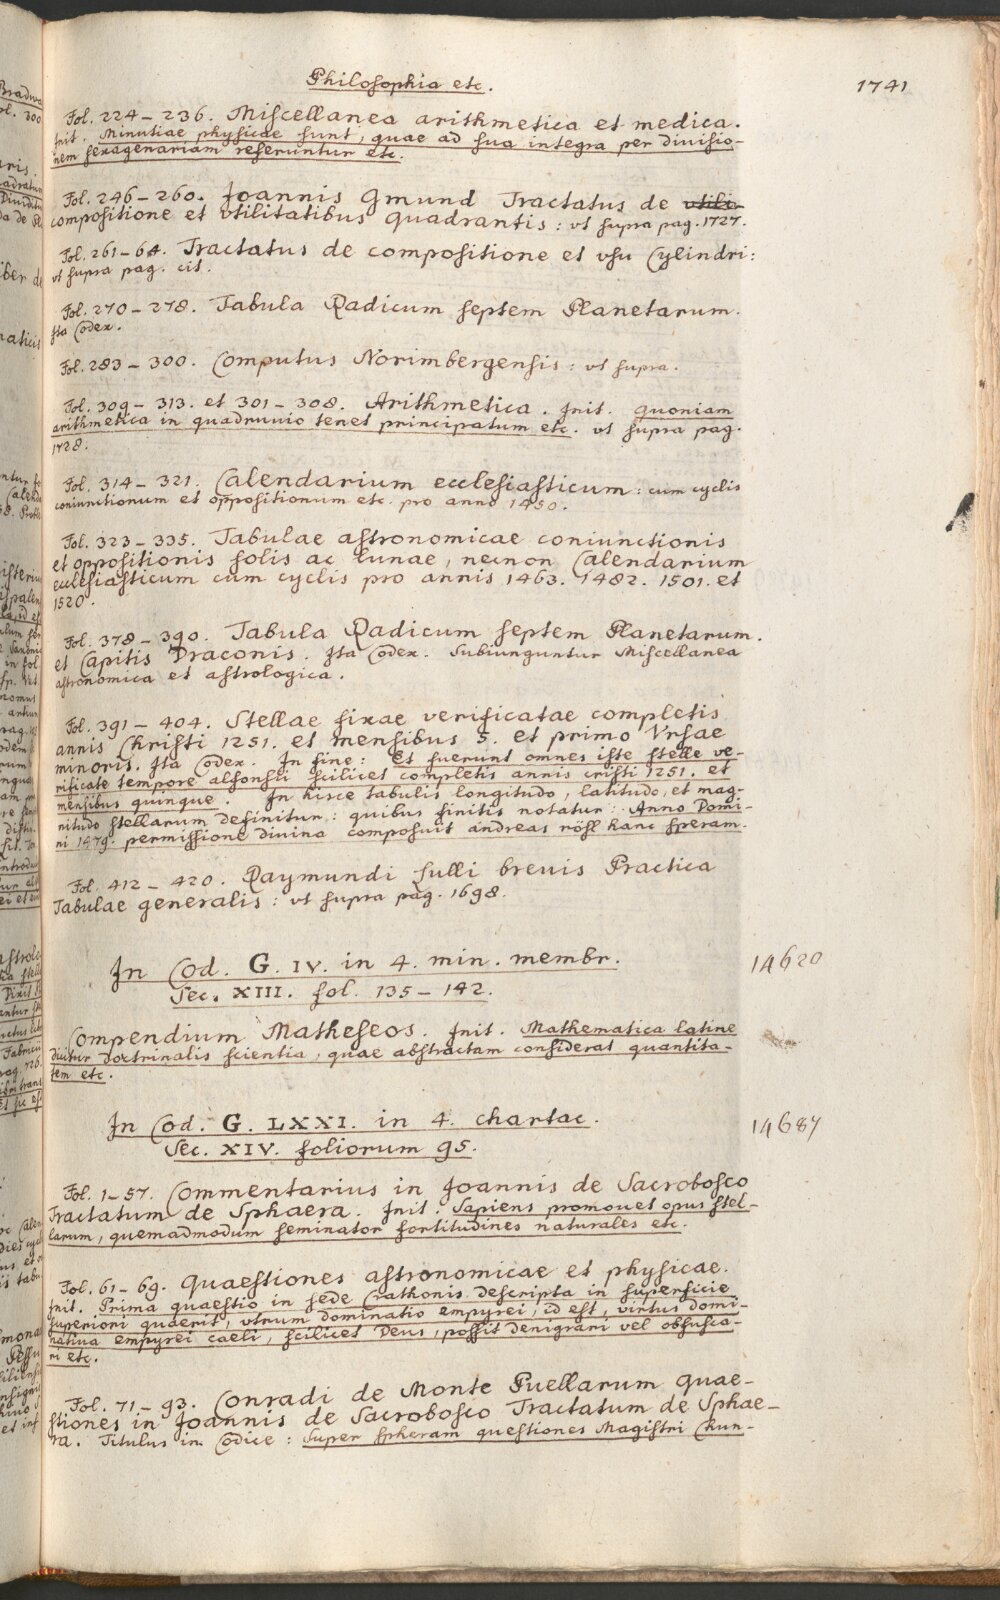 Philosophia etc.
1741
Fol. 224 – 236. Miscellanea arithmetica et medica.
Init. Minutiae physicae sunt, quae ad sua integra per divisio-
nem sexagenariam referuntur etc.
Fol. 246 – 260. Joannis Gmund Tractatus de utili-
compositione et vtilitatibus quadrantis: vt supra pag. 1727.
Fol. 261 – 64. Tractatus de compositione et vsu Cylindri:
vt supra pag. cit.
Fol. 270 – 278. Tabula Radicum septem Planetarum.
Ita Codex.
Fol. 283 – 300. Computus Norimbergensis: vt supra.
Fol. 309 – 313. et 301 – 308. Arithmetica. Init. quoniam
arithmetica in quadruuio tenet principatum etc. vt supra pag.
1728.
Fol. 314 – 321. Calendarium ecclesiasticum: cum cyclis
coniunctionum et oppositionum etc. pro anno 1450.
Fol. 323 – 335. Tabulae astronomicae coniunctionis
et oppositionis solis ac lunae, necnon Calendarium
ecclesiasticum cum cyclis pro annis 1463. 1482. 1501. et
1520.
Fol. 378 – 390. Tabula Radicum septem Planetarum.
et Capitis Draconis. Ita Codex. Subiunguntur Miscellanea
astronomica et astrologica.
Fol. 391 – 404. Stellae fixae verificatae completis
annis Christi 1251. et mensibus 5. et primo Vrsae
minoris. Ita Codex. In fine: Et fuerunt omnes iste stelle ve-
rificate tempore alfonsii scilicet completis annis cristi 1251. et
mensibus quinque. In hisce tabulis longitudo, latitudo, et mag-
nitudo stellarum definitur: quibus finitis notatur: Anno Domi-
ni 1479. permissione diuina composuit andreas rösl hanc speram.
Fol. 412 – 420. Raymundi Lulli breuis Practica
Tabulae generalis: vt supra pag. 1698.
In Cod. G. IV. in 4. min. membr.
14620
Sec. XIII. fol. 135 – 142.
Compendium Matheseos. Init. Mathematica latine
dicitur doctrinalis scientia, quae abstractam considerat quantita-
tem etc.
In Cod. G. LXXI. in 4. chartac.
14687
Sec. XIV. foliorum 95.
Fol. 1 – 57. Commentarius in Joannis de Sacrobosco
Tractatum de Sphaera. Init. Sapiens promouet opus stel-
larum, quemadmodum seminator fortitudines naturales etc.
Fol. 61 – 69. Quaestiones astronomicae et physicae.
Init. Prima quaestio in sede Cathonis descripta in superficie
superiori quaerit, vtrum dominatio empyrei, id est, virtus domi-
natiua empyrei caeli, scilicet Deus, possit denigrari vel obfusca-
ri etc.
Fol. 71 – 93. Conradi de Monte Puellarum quae-
stiones in Joannis de Sacrobosco Tractatum de Sphae-
ra. Titulus in Codice: Super spheram questiones Magistri Chun-